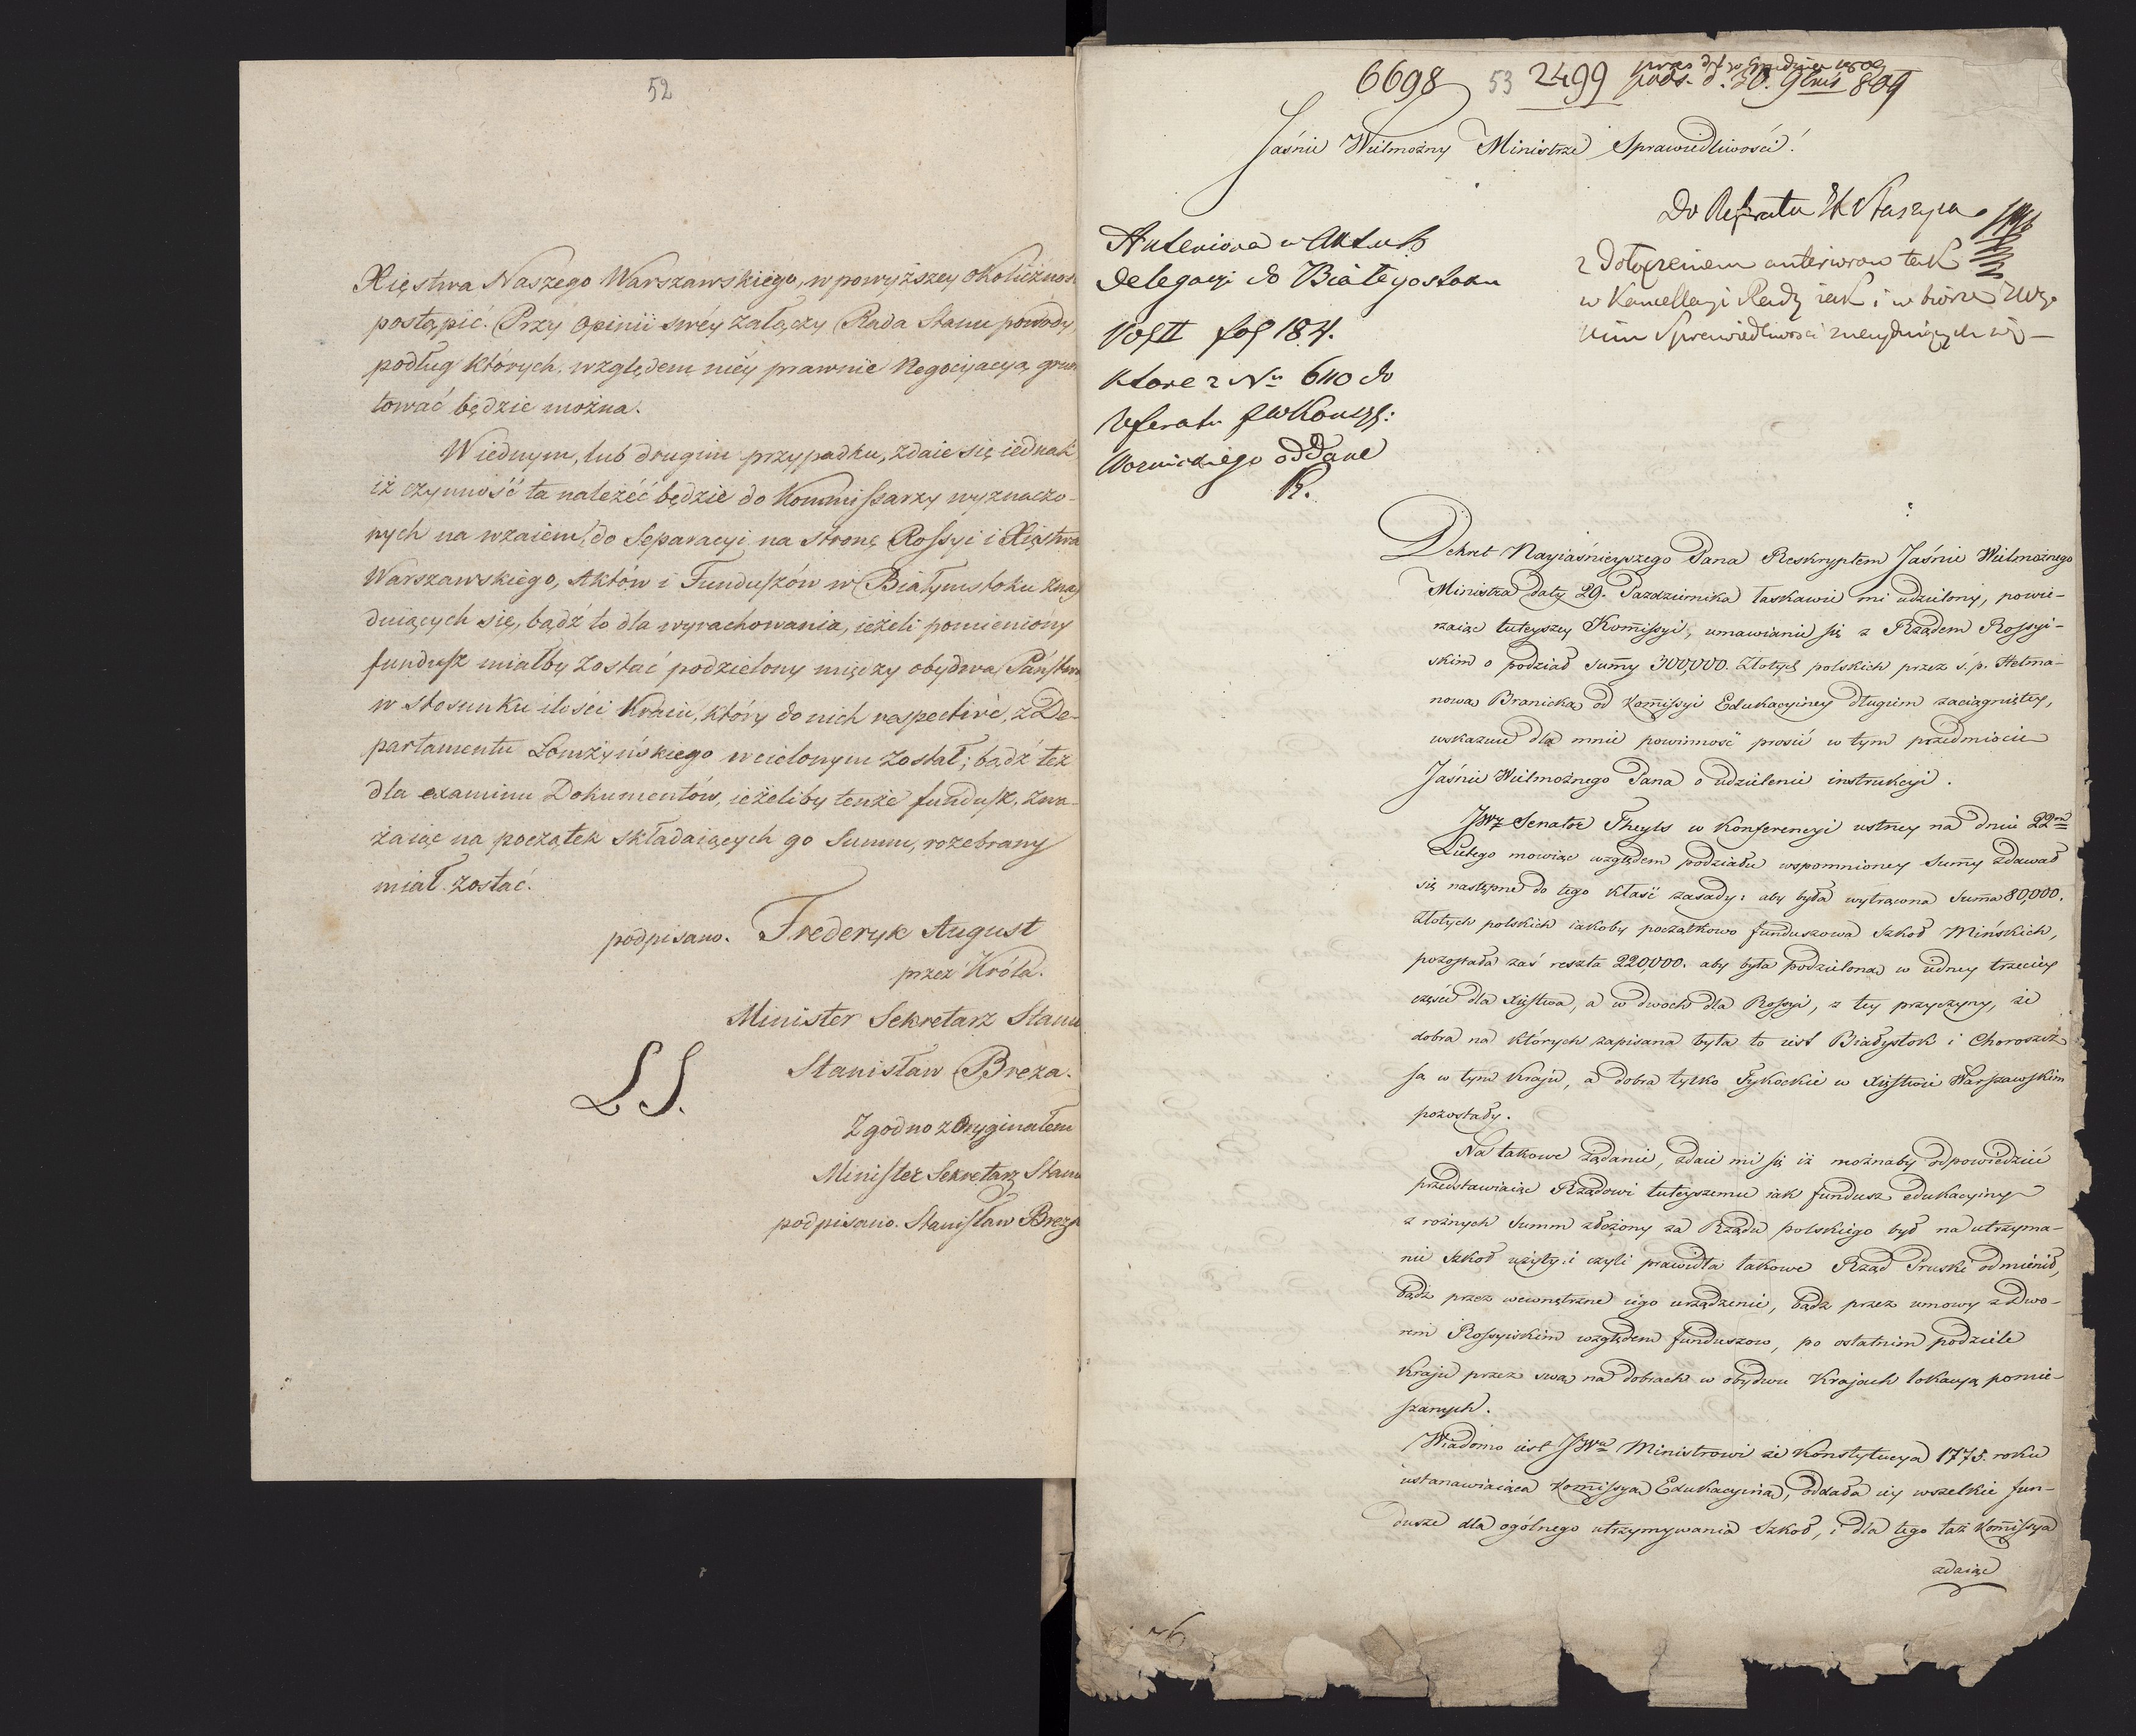 52
Xięstwa Naszego Warszawskiego, w powyższey okoliczno
postąpić. Przy Opinii swéy załączy Rada Stanu powody,
podług których, względem niéy prawnie Negocyacya grun
tować będzie można.
W iednym, lub drugim przypadku, zdaie się iednak
iż czynność ta należéć będzie do Kommissarzy wyznaczo-
nych na wzaiem, do Separacyi na stronę Rossyi i Xięstwa
Warszawskiego, Aktów i Funduszów w Białymstoku znay
duiących się, bądź to dla wyrachowania, ieżeli pomieniony
fundusz miałby zostać podzielony między obydwa Państwa
w stosunku ilości Kraiu, który do nich respectivè, z De-
partamentu Łomżyńskiego wcielonym został; bądź też
dla examinu Dokumentów, ieżeliby tenże fundusz, zwa-
żaiąc na początek składaiących go Summ, rozebrany
miał zostać.
podpisano. Frederyk August
przez Króla.
Minister Sekretarz Stanu
Stanisław Breza.
LS.
Zgodno z Oryginałem
Minister Sekretarz Stanu
podpisano. Stanisław Breza
6698 53 2499 pods. d. 30. 9bris 809
Jaśnie Wielmożny Ministrze Sprawiedliwości!
Do Referatu
z dołączeniem anteriorow tak
w Kancellaryi Rady iak i w biorze
Sprawiedliwości znayduiących się —
Anteriora w Aktach
Delegacyi do Białegostoku
Vol II fol 184.
Ktore z Nr 640 do
Referatu
Woznickiego oddane
R.
Dekret Nayiaśnieyszego Pana Reskryptem Jaśnie Wielmożnego
Ministra daty 29. Pazdziernika łaskawie mi udzielony, powie-
rzaiąc tuteyszey Kom̄issyi, umawianie się z Rządem Rossyi-
skim o podział Sum̄y 300,000. Złotych polskich przez ś.p. Hetma-
nowę Branicką od Kom̄issyi Edukacyiney długiem zaciągniętey,
wskazuie dla mnie powinność prosić w tym przedmiocie
Jaśnie Wielmożnego Pana o udzielenie instrukcyi.
JWż Senator Theyls w Konferencyi ustney na dniu 22m
Lutego mowiąc względem podziału wspomnioney Sum̄y zdawał
się następne do tego kłaść zasady: aby była wytrącona Sum̄a 80,000.
Złotych polskich iakoby początkowo funduszowa Szkoł Mińskich,
pozostała zaś reszta 220,000. aby była podzielona w iedney trzeciey
części dla Xięstwa, a w dwoch dla Rossyi, z tey przyczyny, że
dobra na których zapisana była to iest Białystok i Choroszcz
są w tym Kraju, a dobra tylko Tykockie w Xięstwie Warszawskim
pozostały.
Na takowe żądanie, zdaie mi się iż możnaby odpowiedzieć
przedstawiaiąc Rządowi tuteyszemu iak fundusz edukacyiny
z rożnych Summ złożony za Rządu polskiego był na utrzyma-
nie Szkoł użyty: i czyli prawidła takowe Rząd Pruski odmienił,
bądz przez wewnętrzne iego urządzenie, bądz przez umowy z Dwo-
rem Rossyiskim względem funduszow, po ostatnim podziele
Kraju przez swą na dobrach w obydwu Krajach lokacyą pomie-
szanych.
Wiadomo iest JWu Ministrowi że Konstytucya 1775. roku
ustanawiaiąca Kom̄issyą Edukacyiną, oddała iey wszelkie fun-
dusze dla ogólnego utrzymywania Szkoł, i dla tego taż Kom̄issya
zdaiąc